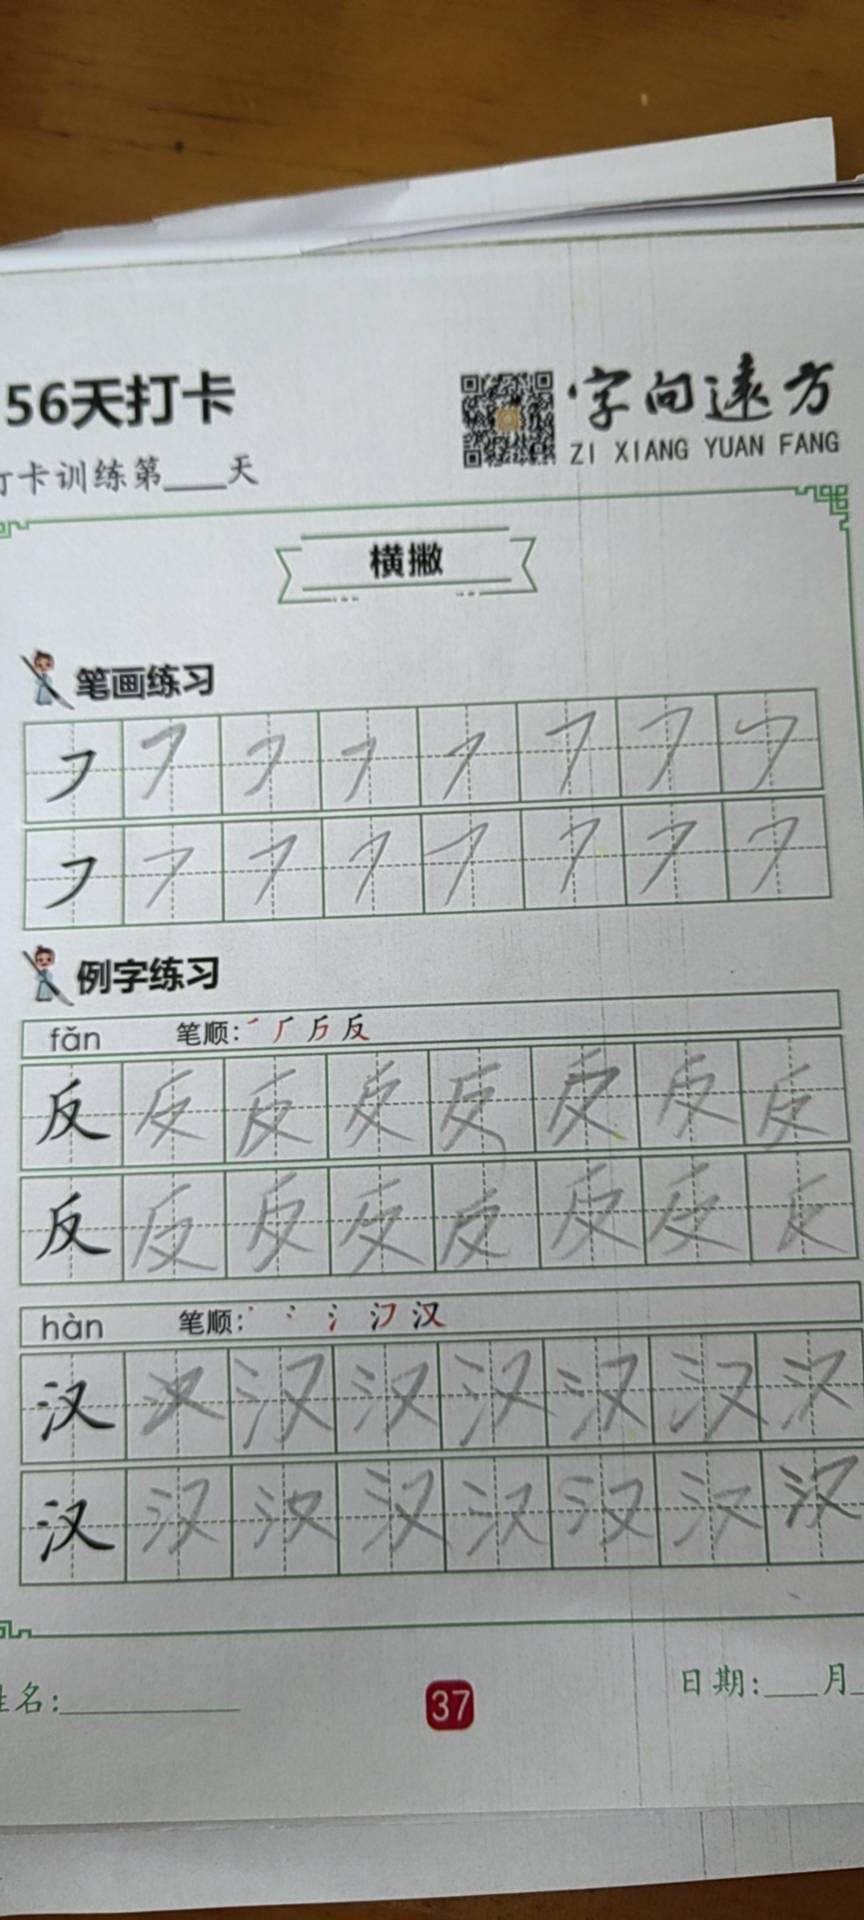 56天打卡
字向远方
ZI XIANG YUAN FANG
打卡训练第____天
横撇
笔画练习
㇇ ㇇ ㇇ ㇇ ㇇ ㇇ ㇇ ㇇
㇇ ㇇ ㇇ ㇇ ㇇ ㇇ ㇇ ㇇
例字练习
fǎn 笔顺: 反
反 反 反 反 反 反 反 反
反 反 反 反 反 反 反 反
hàn 笔顺: 氵 汉
汉 汉 汉 汉 汉 汉 汉 汉
汉 汉 汉 汉 汉 汉 汉 汉
姓名:__________ 37 日期:___月_